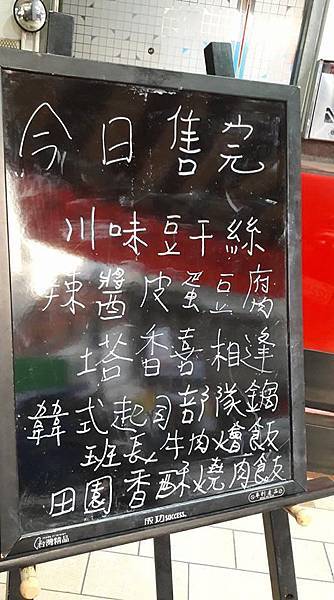 今日售完
川味豆干絲
辣醬皮蛋豆腐
塔香喜相逢
韓式起司部隊鍋
班長牛肉燴飯
田園香酥燒肉飯
成功 SUCCESS.
台灣精品